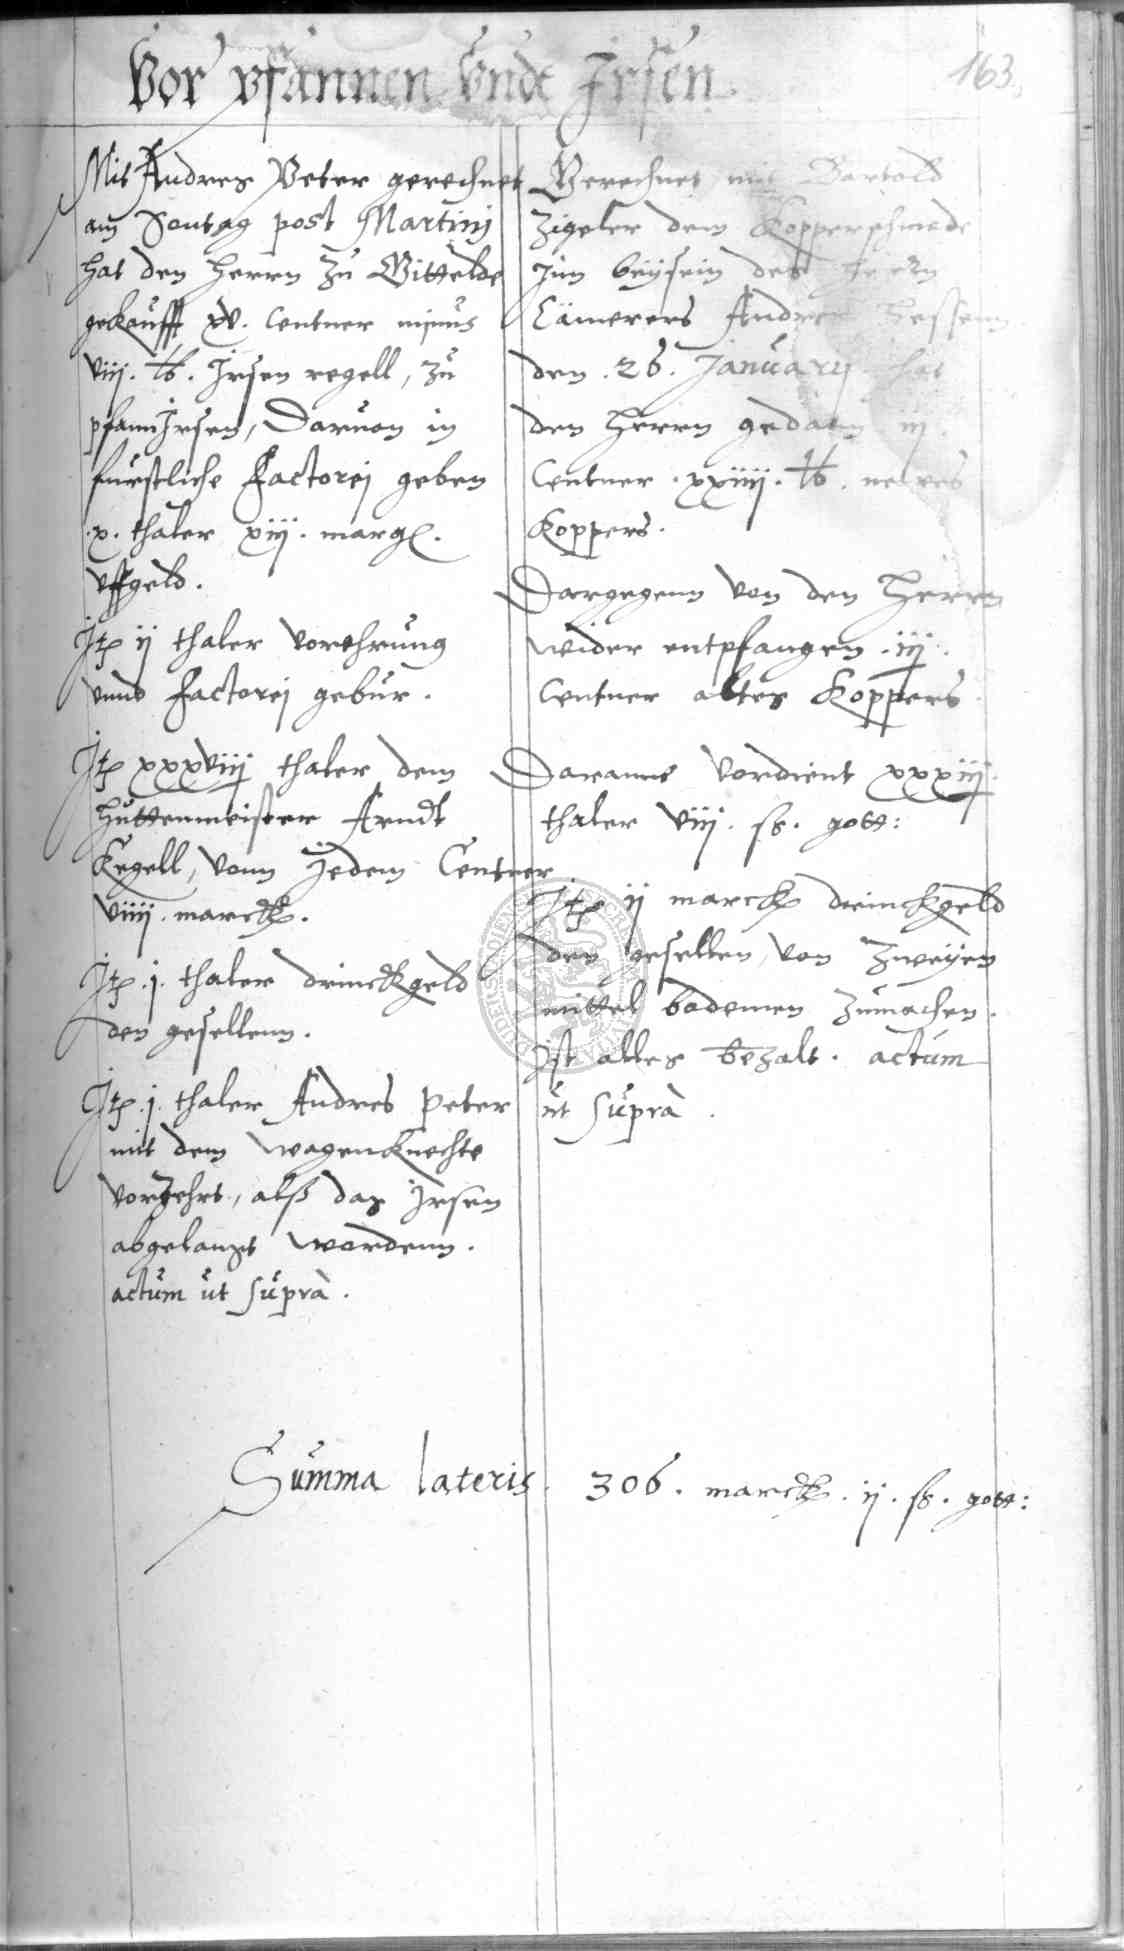 Vor pfannen vnde Irsen
163.
Mit Andres Peter gerechnet
am Sontag post Martinj
hat den Herrn zu Gittelde
gekaufft xv. Centner minus
viij. ℔. Irsen regell, zu
pfann Irsen, Daruon in
furstliche Factorej geben
.x. thaler xiij. marg.
vffgeld.
Itz ij thaler vorehrung
vnnd factorej gebur.
Itz xxxviij thaler dem
Huttenmeister Arndt
Kegell, vonn Jedem Centner
viiij. marck.
Itz .j. thaler drinckgeld
den gesellenn.
Itz .j. thaler Andres Peter
mit dem wagenknechte
vorzehrt, alß das Irsen
abgelangt wordenn.
actum ut supra.
Gerechnet mit Bartold
Zigeler dem Kopperschmede
Jnn beysein des Herrn
Cämerers Andres Hessenn
den .26. January hat
den Herrn gedann iij.
Centner .xxiiij. ℔. newes
Koppers.
Dargegenn von den Herrn
wider entpfangen .iij.
Centner altes Koppers
Daranne vordient xxxiij.
thaler viij. ß. gott:
Itz ij marck drinckgeld
den gesellen, von zweyen
mittel bodemen zumachen.
Ist alles bezalt. actum
ut supra.
Summa lateris. 306. marck. ij. ß. gott: